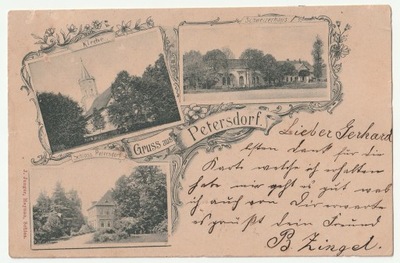 Kirche.
Gruss aus Petersdorf.
Schloss Petersdorf.
Lieber Gerhard
Besten Dank für die
Karte welche ich erhalten
habe mir geht es gut was
ich auch von Dir erwarte
es grüßt dein Freund
B Zingel.